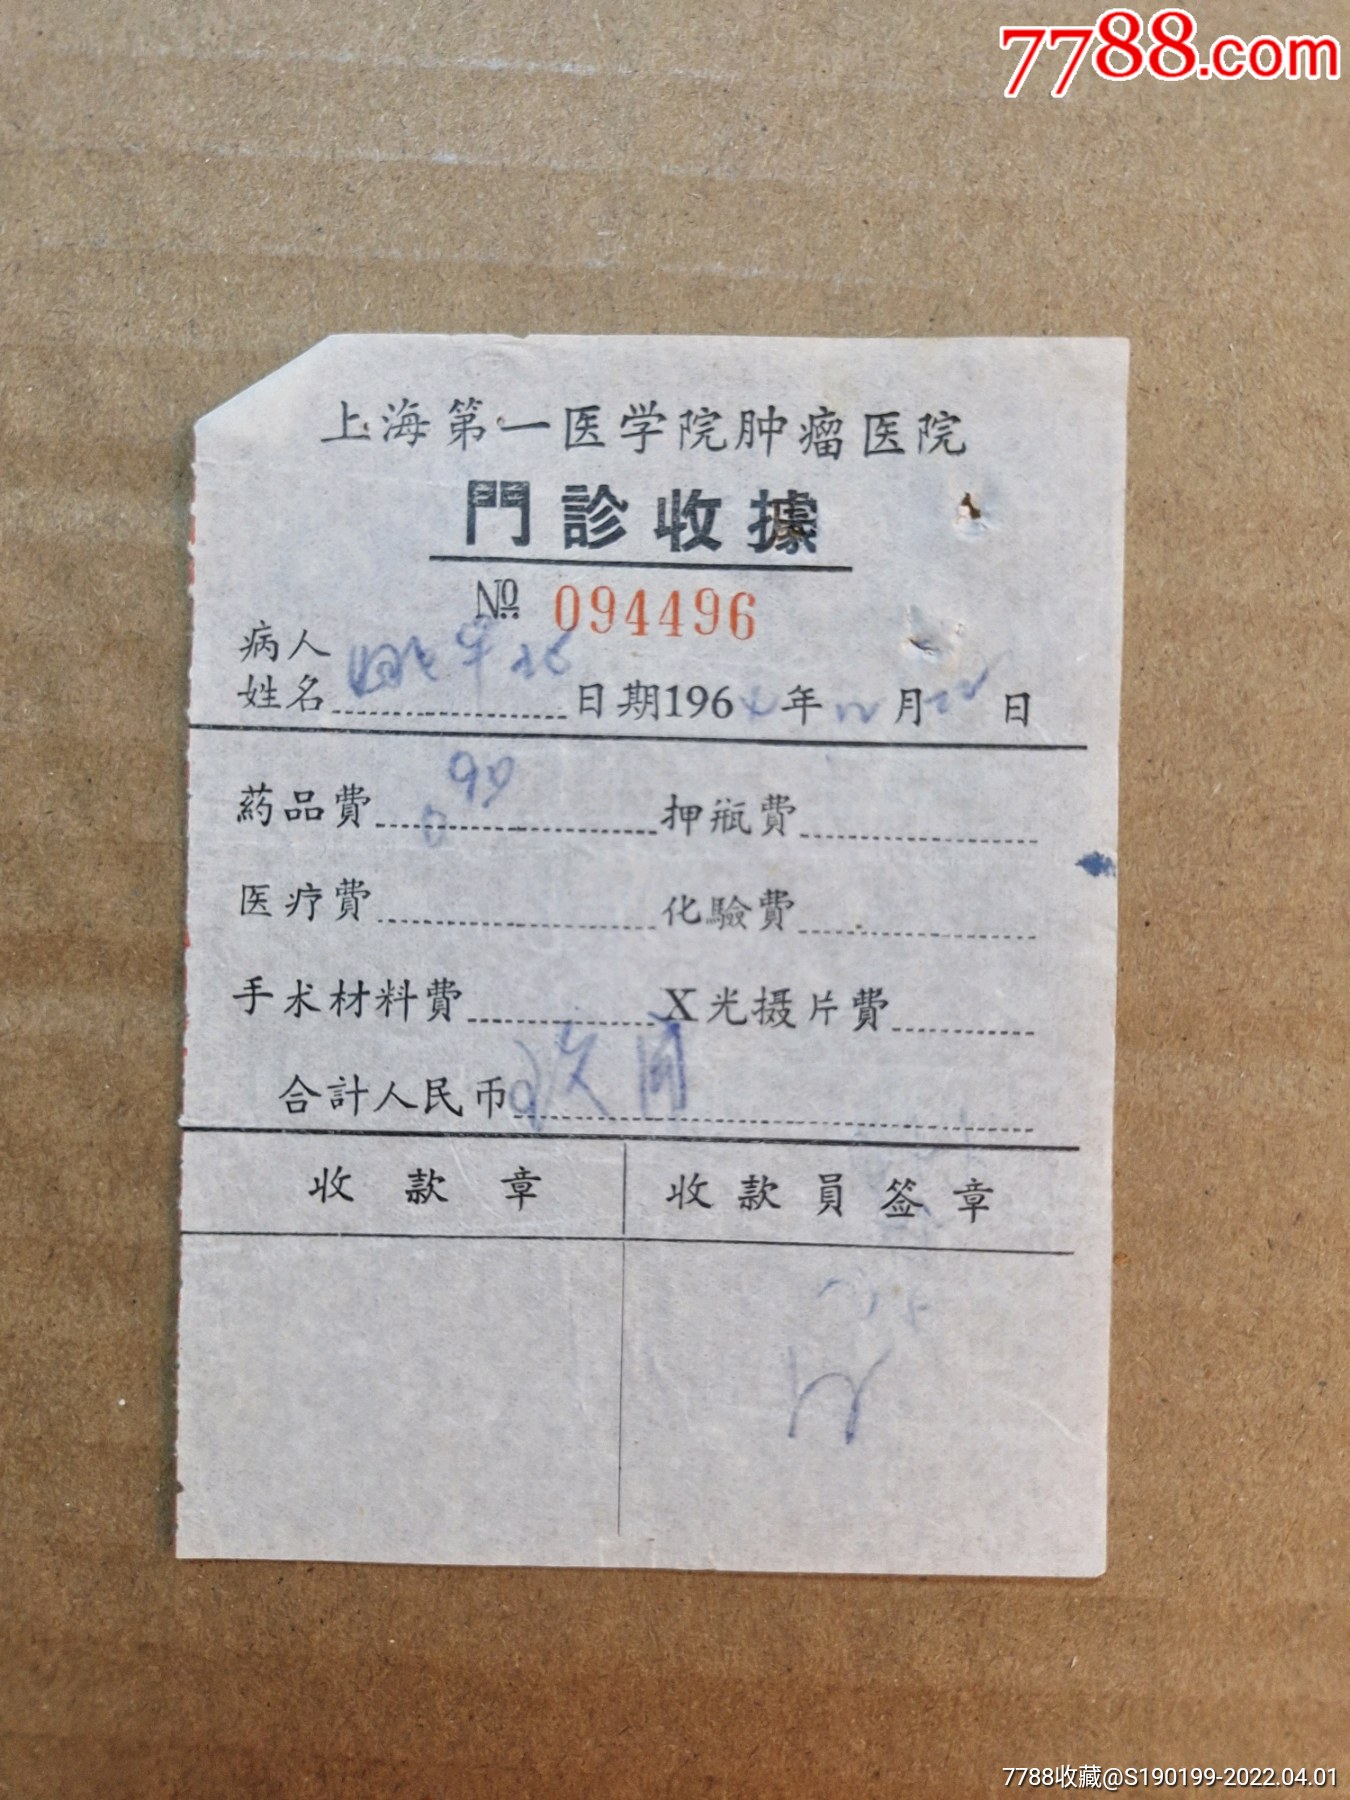 7788.com
上海第一医学院肿瘤医院
門診收據
№ 094496
病人
姓名 日期196 年 月 日
药品費 押瓶費
医疗費 化驗費
手术材料費 X光摄片費
合計人民币
收款章 收款員签章
7788收藏@S190199-2022.04.01